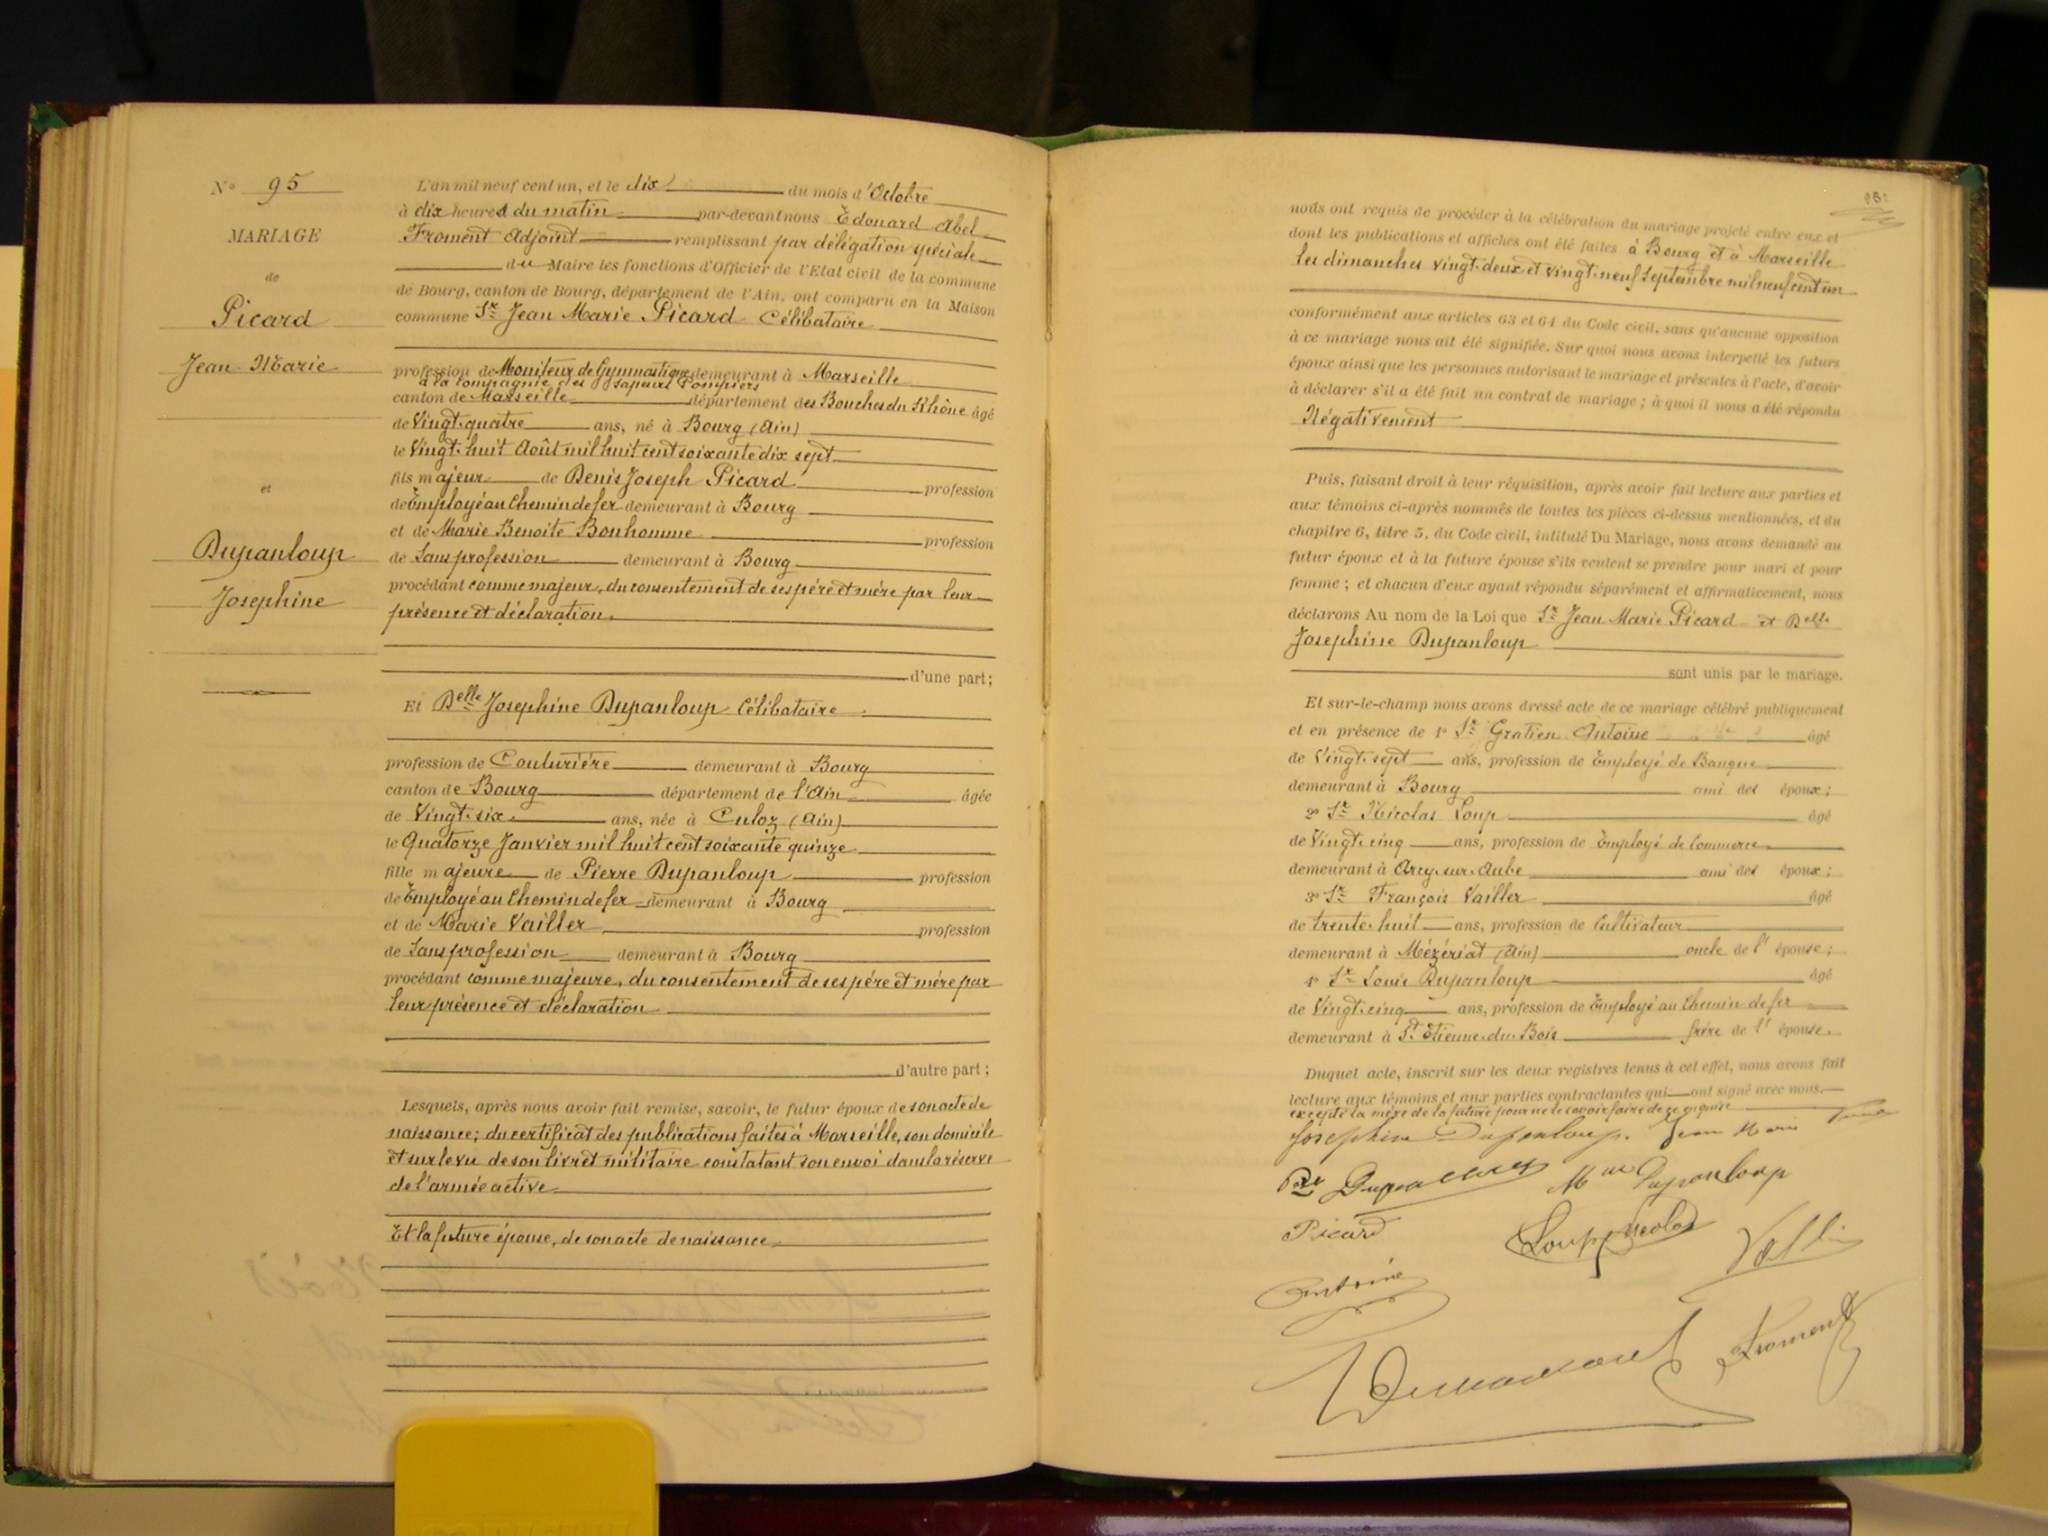 N° 95
MARIAGE
de
Picard
Jean-Marie
et
Dupanloup
Josephine
L'an mil neuf cent un, et le dix du mois d'Octobre
à dix heures du matin par-devant nous Edouard Abel
Froment Adjoint remplissant par délégation spéciale
du Maire les fonctions d'Officier de l'Etat civil de la commune
de Bourg, canton de Bourg, département de l'Ain, ont comparu en la Maison
commune Sr Jean Marie Picard Célibataire
profession de Moniteur de Gymnastique demeurant à Marseille
à la compagnie des sapeurs Pompiers
canton de Marseille département des Bouches du Rhône âgé
de Vingt-quatre ans, né à Bourg (Ain)
le Vingt-huit Août mil huit cent soixante dix sept
fils majeur de Denis Joseph Picard profession
de Employé au Chemin de fer demeurant à Bourg
et de Marie Benoite Bonhomme profession
de Sans profession demeurant à Bourg
procédant comme majeur, du consentement de ses père et mère par leur
présence et déclaration.
d'une part;
Et Delle Josephine Dupanloup Célibataire
profession de Couturière demeurant à Bourg
canton de Bourg département de l'Ain âgée
de Vingt-six ans, née à Culoz (Ain)
le Quatorze Janvier mil huit cent soixante quinze
fille majeure de Pierre Dupanloup profession
de Employé au Chemin de fer demeurant à Bourg
et de Marie Vailler profession
de Sans profession demeurant à Bourg
procédant comme majeure, du consentement de ses père et mère par
leur présence et déclaration
d'autre part;
Lesquels, après nous avoir fait remise, savoir, le futur époux de son acte de
naissance; du certificat des publications faites à Marseille, son domicile
et sur le vu de son livret militaire constatant son envoi dans la réserve
de l'armée active
Et la future épouse, de son acte de naissance
nous ont requis de procéder à la célébration du mariage projeté entre eux et
dont les publications et affiches ont été faites à Bourg et à Marseille
les dimanches vingt-deux et vingt-neuf Septembre mil neuf cent un
conformément aux articles 63 et 64 du Code civil, sans qu'aucune opposition
à ce mariage nous ait été signifiée. Sur quoi nous avons interpellé les futurs
époux ainsi que les personnes autorisant le mariage et présentes à l'acte, d'avoir
à déclarer s'il a été fait un contrat de mariage; à quoi il nous a été répondu
Négativement
Puis, faisant droit à leur réquisition, après avoir fait lecture aux parties et
aux témoins ci-après nommés de toutes les pièces ci-dessus mentionnées, et du
chapitre 6, titre 5, du Code civil, intitulé Du Mariage, nous avons demandé au
futur époux et à la future épouse s'ils veulent se prendre pour mari et pour
femme; et chacun d'eux ayant répondu séparément et affirmativement, nous
déclarons Au nom de la Loi que Sr Jean Marie Picard et Delle
Josephine Dupanloup
sont unis par le mariage.
Et sur-le-champ nous avons dressé acte de ce mariage célébré publiquement
et en présence de 1° Sr Gratien Antoine âgé
de Vingt-sept ans, profession de Employé de Banque
demeurant à Bourg ami des époux;
2° Sr Nicolas Loup âgé
de Vingt-cinq ans, profession de Employé de Commerce
demeurant à Arcy-sur-Aube ami des époux;
3° Sr François Vailler âgé
de trente-huit ans, profession de Cultivateur
demeurant à Mézériat (Ain) oncle de l'épouse;
4° Sr Louis Dupanloup âgé
de Vingt-cinq ans, profession de Employé au Chemin de fer
demeurant à St Etienne-du-Bois frère de l'épouse.
Duquel acte, inscrit sur les deux registres tenus à cet effet, nous avons fait
lecture aux témoins et aux parties contractantes qui ont signé avec nous.
excepté la mère de la future pour ne le savoir faire de ce requise
Josephine Dupanloup. Jean Marie
Dupanloup
Picard Loup Nicolas
Antoine
Froment